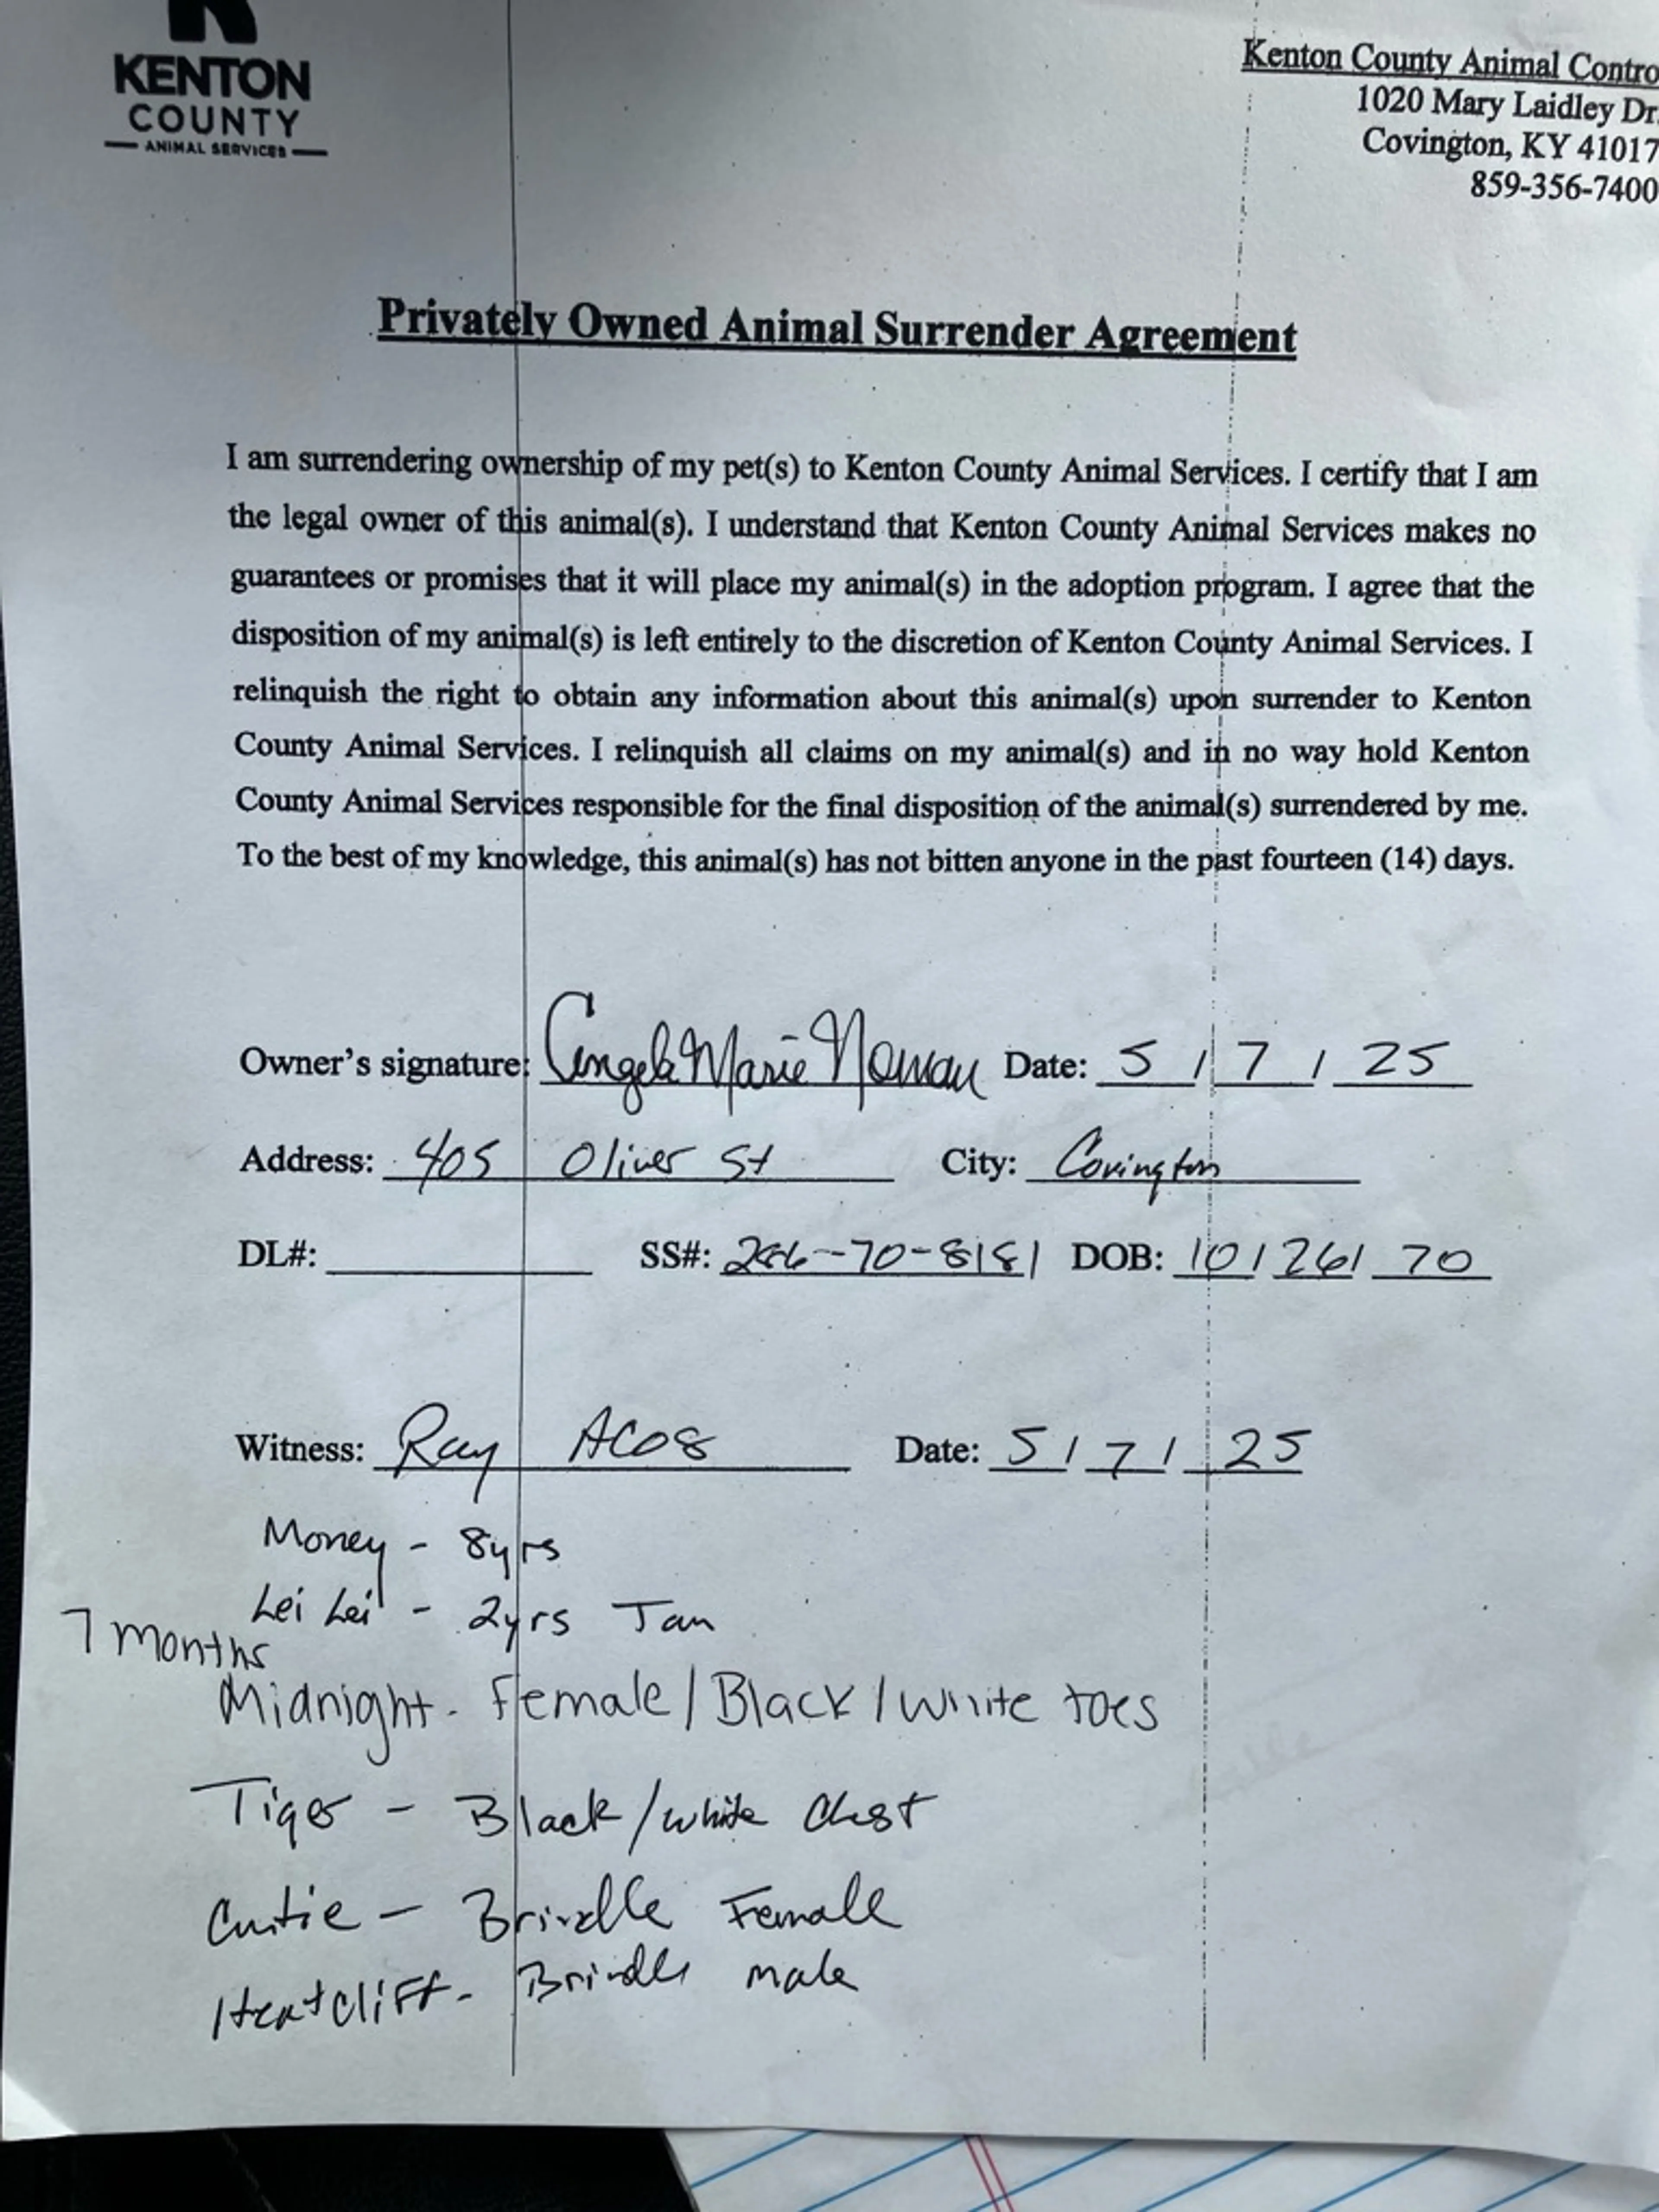 KENTON
COUNTY
ANIMAL SERVICES
Kenton County Animal Contro
1020 Mary Laidley Dr.
Covington, KY 41017
859-356-7400
Privately Owned Animal Surrender Agreement
I am surrendering ownership of my pet(s) to Kenton County Animal Services. I certify that I am
the legal owner of this animal(s). I understand that Kenton County Animal Services makes no
guarantees or promises that it will place my animal(s) in the adoption program. I agree that the
disposition of my animal(s) is left entirely to the discretion of Kenton County Animal Services. I
relinquish the right to obtain any information about this animal(s) upon surrender to Kenton
County Animal Services. I relinquish all claims on my animal(s) and in no way hold Kenton
County Animal Services responsible for the final disposition of the animal(s) surrendered by me.
To the best of my knowledge, this animal(s) has not bitten anyone in the past fourteen (14) days.
Owner's signature: Angela Marie Date: 5/7/25
Address: 405 Oliver St City: Covington
DL#: SS#: DOB: 10/26/70
Witness: Ray ACO8 Date: 5/7/25
Money - 8yrs
Lei Lei - 2yrs Tan
7 months
Midnight - Female/Black/White toes
Tiger - Black/white Chest
Cutie - Brindle Female
Heatcliff - Brindle male